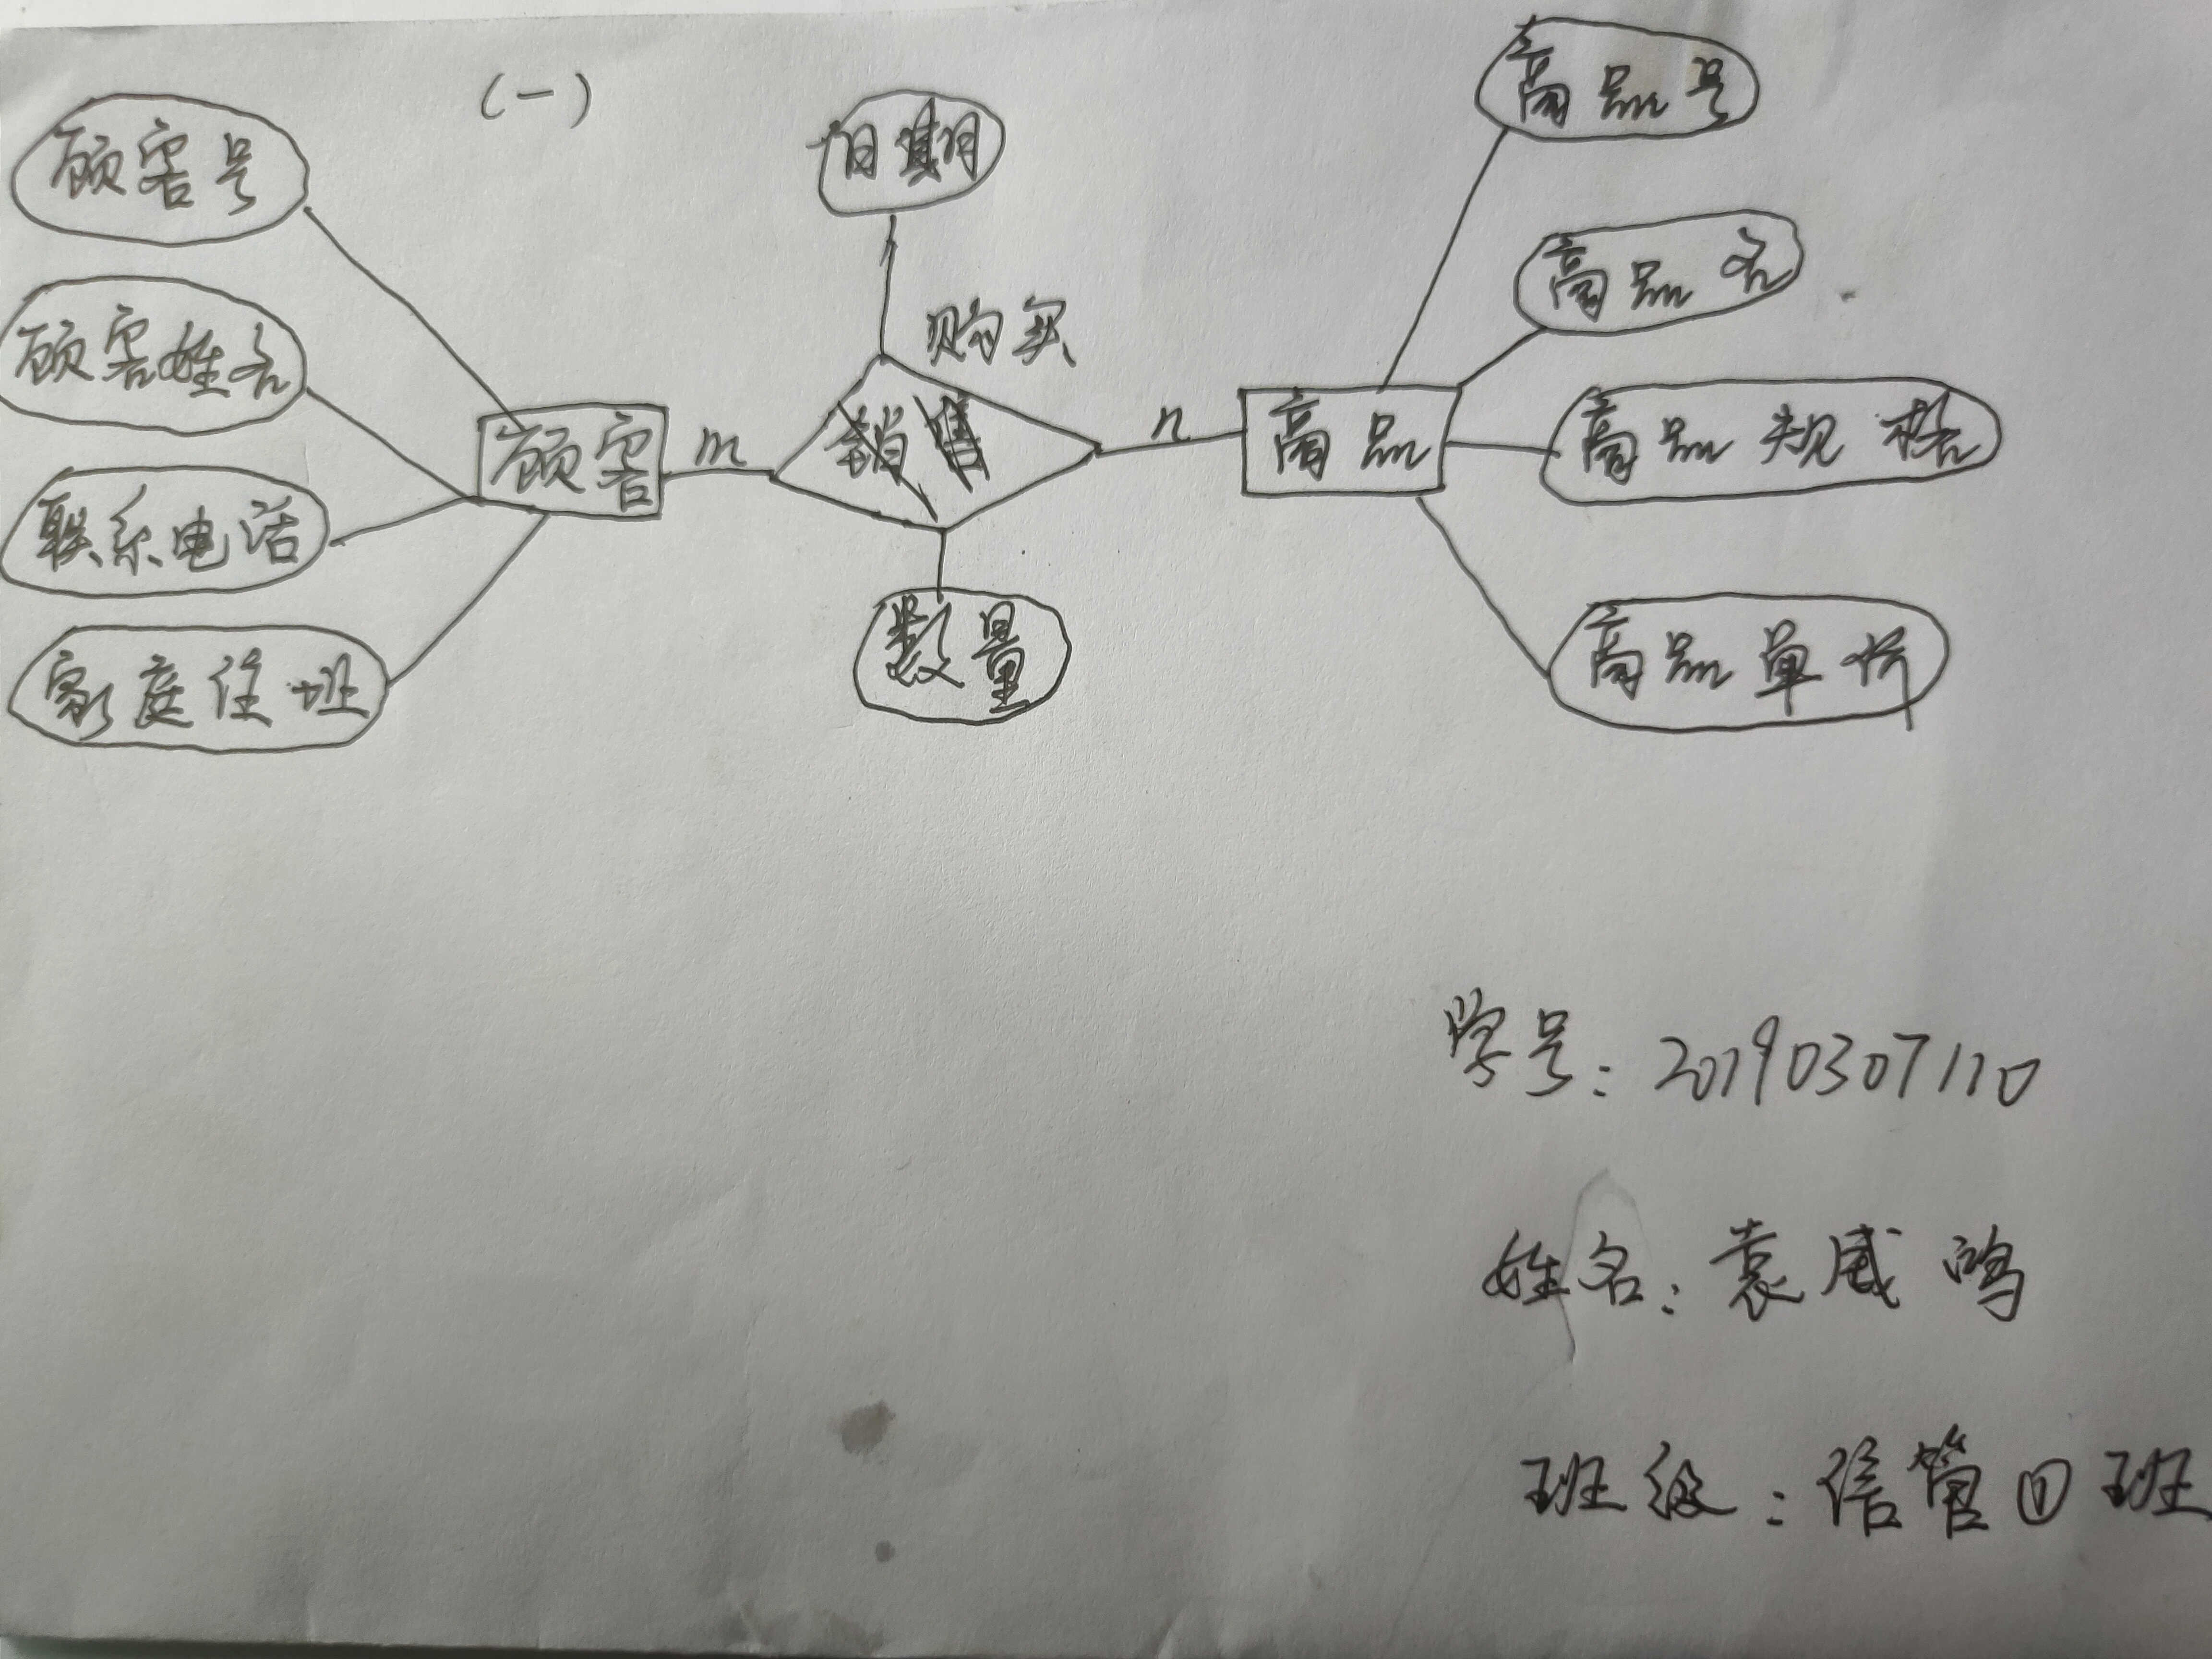 (一)
顾客号
顾客姓名
联系电话
家庭住址
顾客
m
日期
购买
销售
数量
n
商品
商品号
商品名
商品规格
商品单价
学号:20190307110
姓名:袁威鸿
班级:信管①班